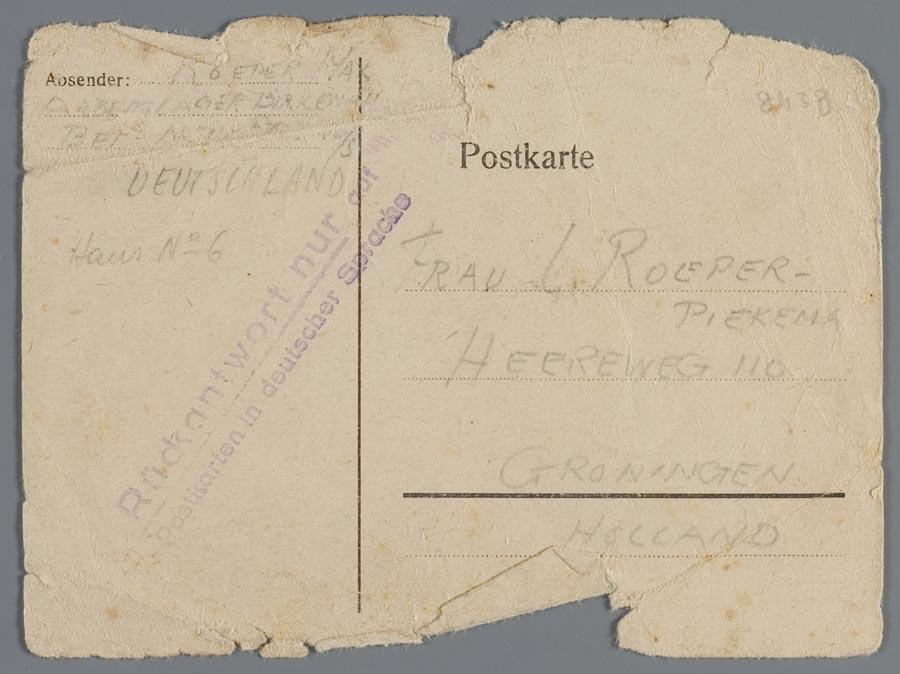 Absender: ROEPER MAX
ARBEITSLAGER BIRKENAU
DEUTSCHLAND
Haus No 6
Rückantwort nur auf
Postkarten in deutscher Sprache
8438
Postkarte
FRAU L. ROEPER-
PIEKEMA
HEEREWEG 110
GRONINGEN
HOLLAND